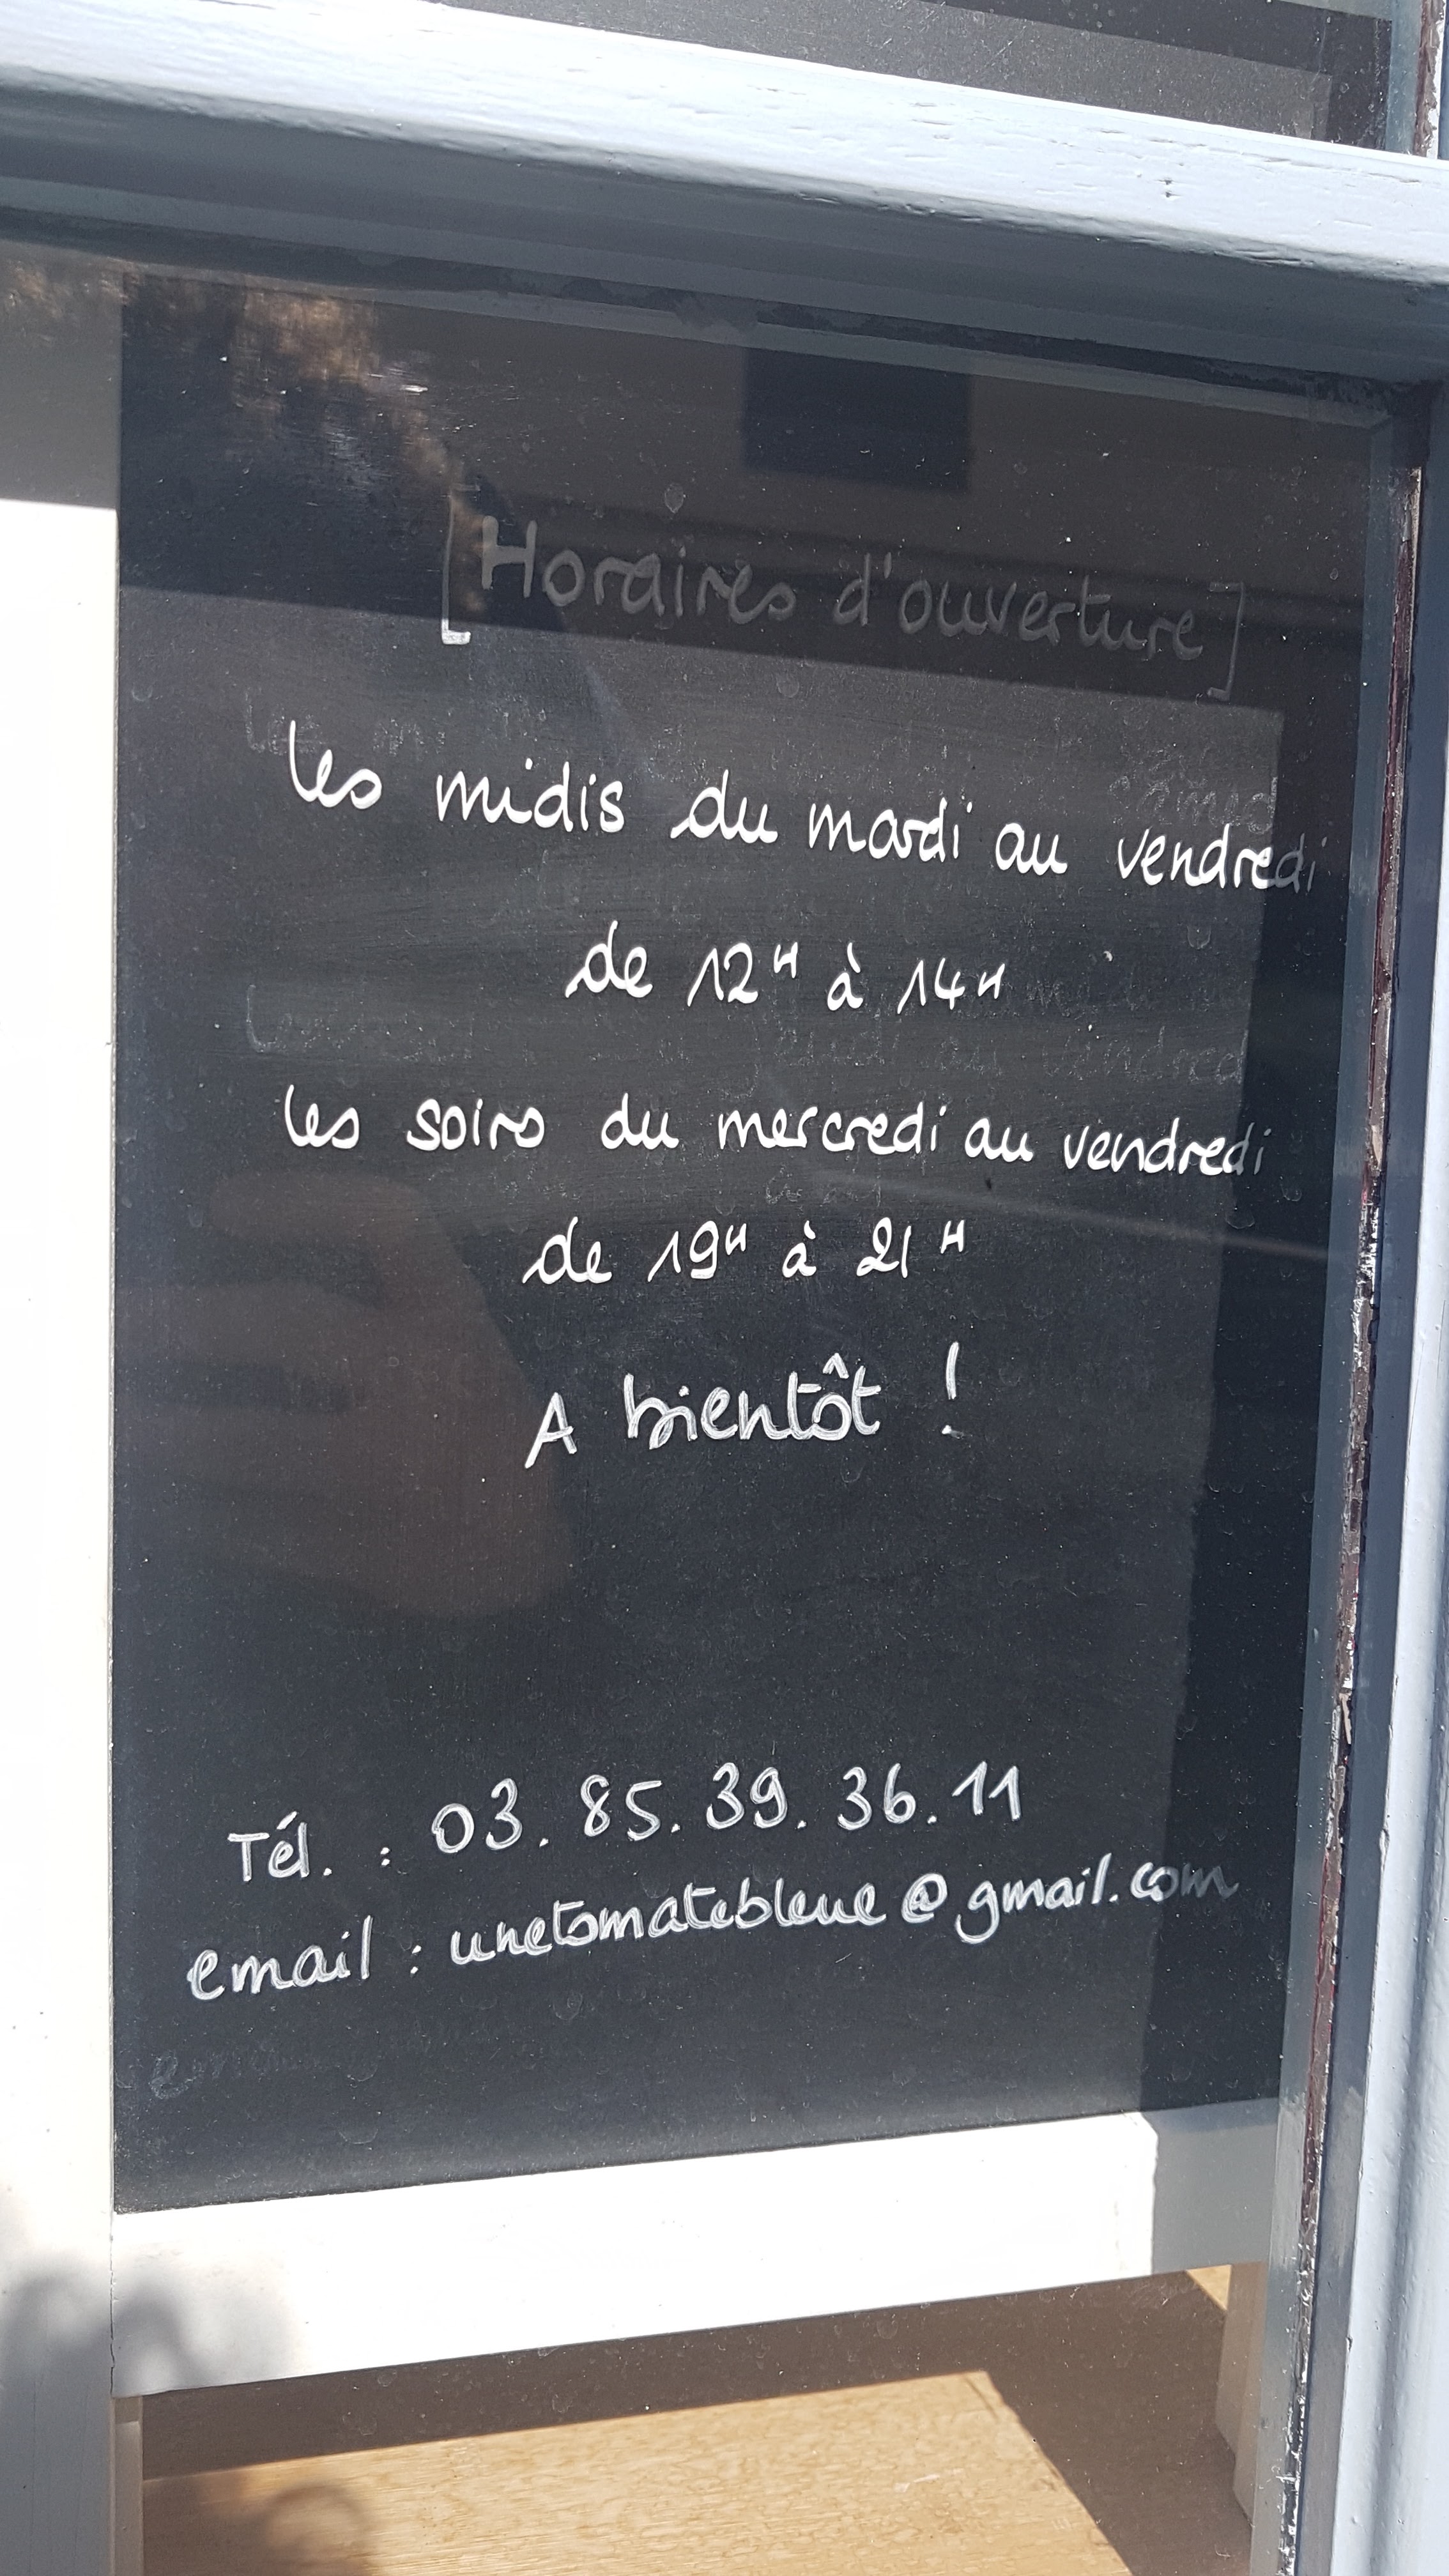 [Horaires d'ouverture]
les midis du mardi au vendredi
de 12H à 14H
les soirs du mercredi au vendredi
de 19H à 21H
A bientôt !
Tél. : 03. 85. 39. 36. 11
email : unetomatebleue@gmail.com